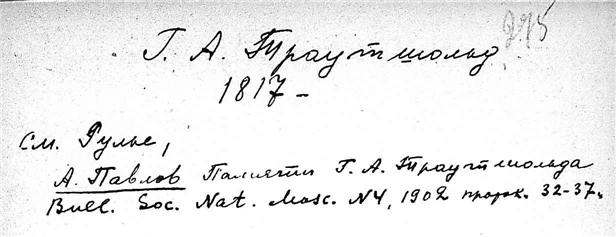 295
Г. А. Траутшольд
1817 –
См. Рулье,
А. Павлов Памяти Г. А. Траутшольда
Bull. Soc. Nat. Mosc. N4, 1902  32-37.